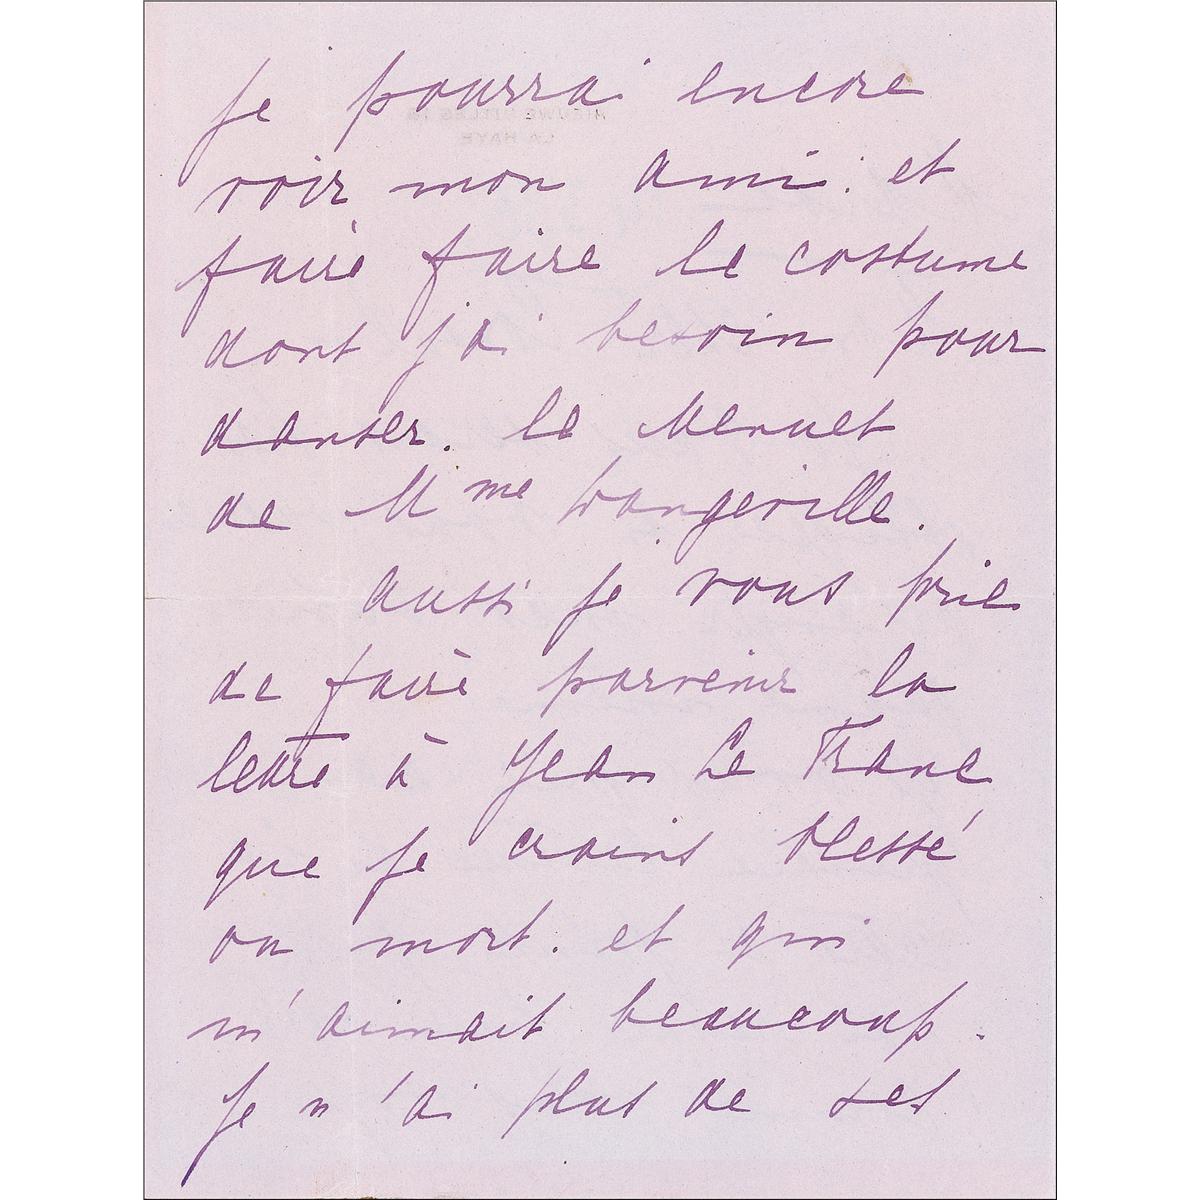 je pourrai encore
voir mon ami. et
faire faire le costume
dont j'ai besoin pour
danser. le Menuet
de Mme Dangeville.
aussi je vous prie
de faire parvenir la
lettre à Jean Le Franc
que je crains blessé
ou mort. et qui
m'aimait beaucoup.
Je n'ai plus de ses